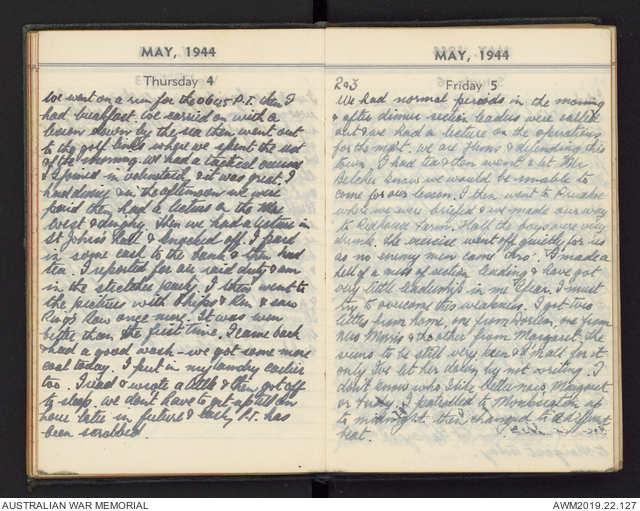 MAY, 1944
Thursday 4
We went on a run for the 0645 P.T. then I
had breakfast. We carried on with a
lesson down by the sea then went out
to the golf links where we spent the rest
of the morning. We had a tactical
& I joined in voluntarily & it was great. I
had & in the afternoon we were
paid then had a lecture on the
West & dinghy. Then we had a lecture in
St John's Hall & knocked off. I paid
in some cash to the bank & then had
tea. I reported for air raid duty & am
in the stretcher party. I then went to
the pictures with & Ken & saw
Row once more. It was even
better than the first time. I came back
& had a good wash - we got some more
coal today. I put in my laundry earlier
too. I read & wrote a little & then got off
to sleep. We don't have to get up till an
hour later in future & early P.T. has
been scrubbed.
MAY, 1944
203
Friday 5
We had normal periods in the morning
& after dinner section leaders were called
out & we had a lecture on the operations
for the night. We are & defending this
town. I had tea & then went & let Mr
Belcher know we would be unable to
come for our lesson. I then went to
where we were briefed & we made our way
to Redhouse Farm. Half the boys were very
drunk. The exercise went off quietly for us
as no enemy men came thro'. I made a
hell of a mess of section leading & have got
very little leadership in me I must
try to overcome this weakness. I got two
letters from home, one from, one from
Miss Morris & another from Margaret. She
seems to be still very keen & I fall for it
only I've let her down by not writing. I
don't know who I like better now Margaret
or. I patrolled to up
to midnight then changed to a different
beat.
AUSTRALIAN WAR MEMORIAL
AWM2019.22.127